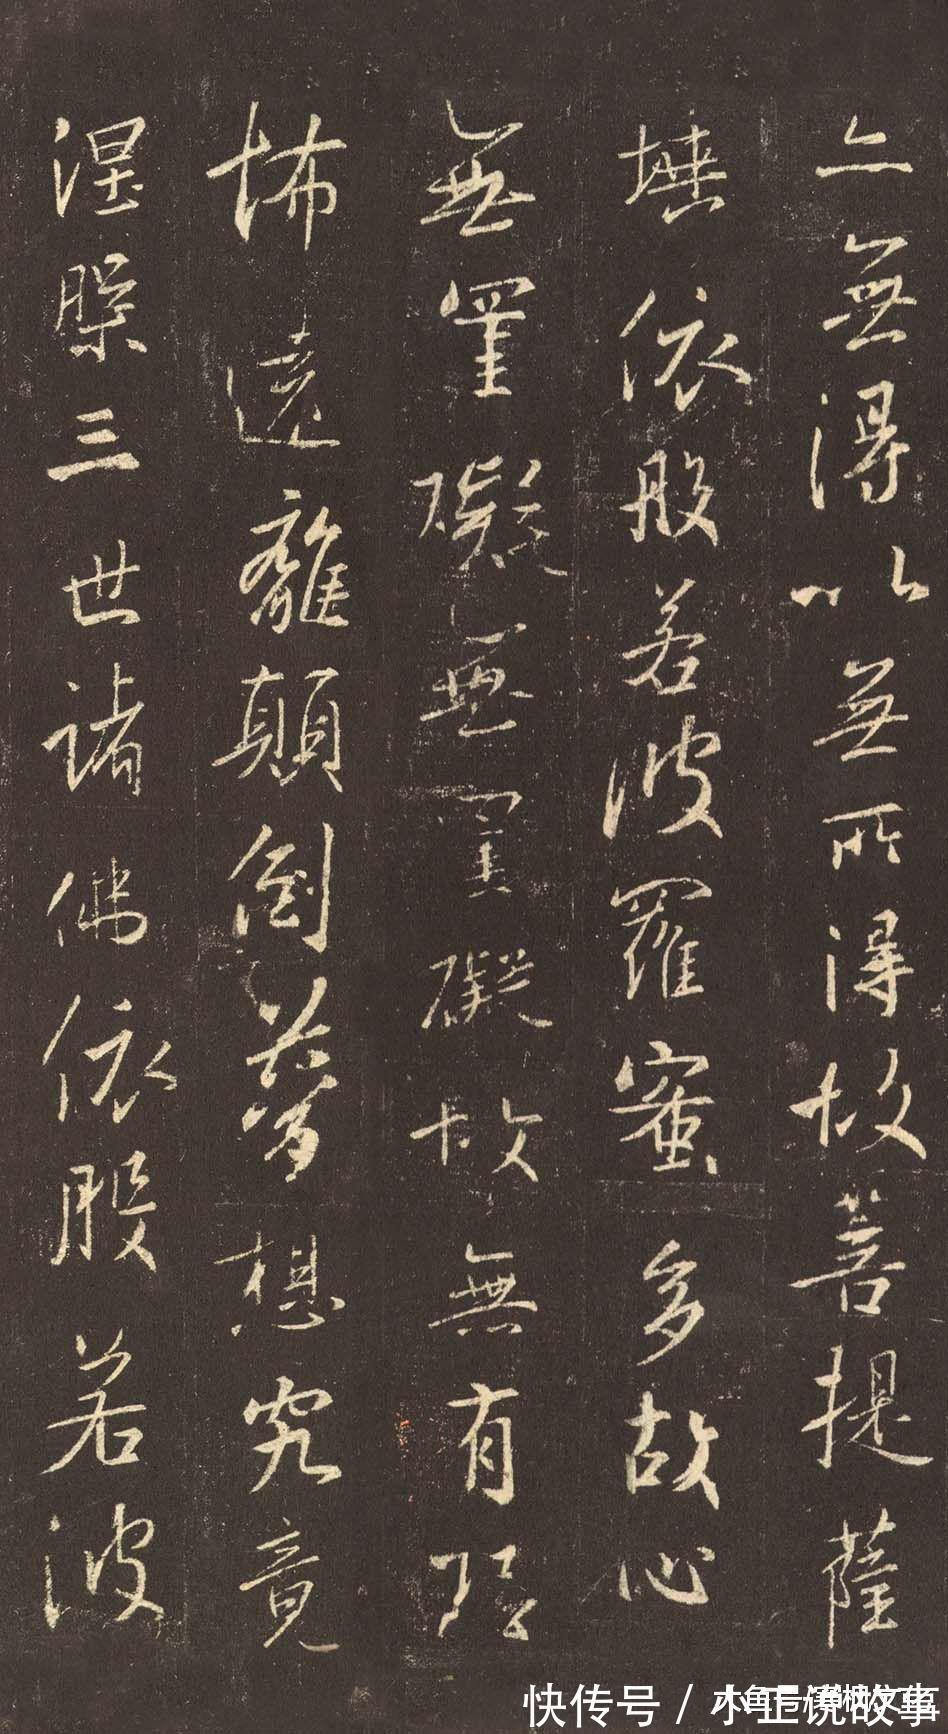 亦無得以無所得故菩提薩
埵依般若波羅蜜多故心
無罣礙無罣礙故無有恐
怖遠離顛倒夢想究竟
涅槃三世諸佛依般若波
快传号 / 小正说故事